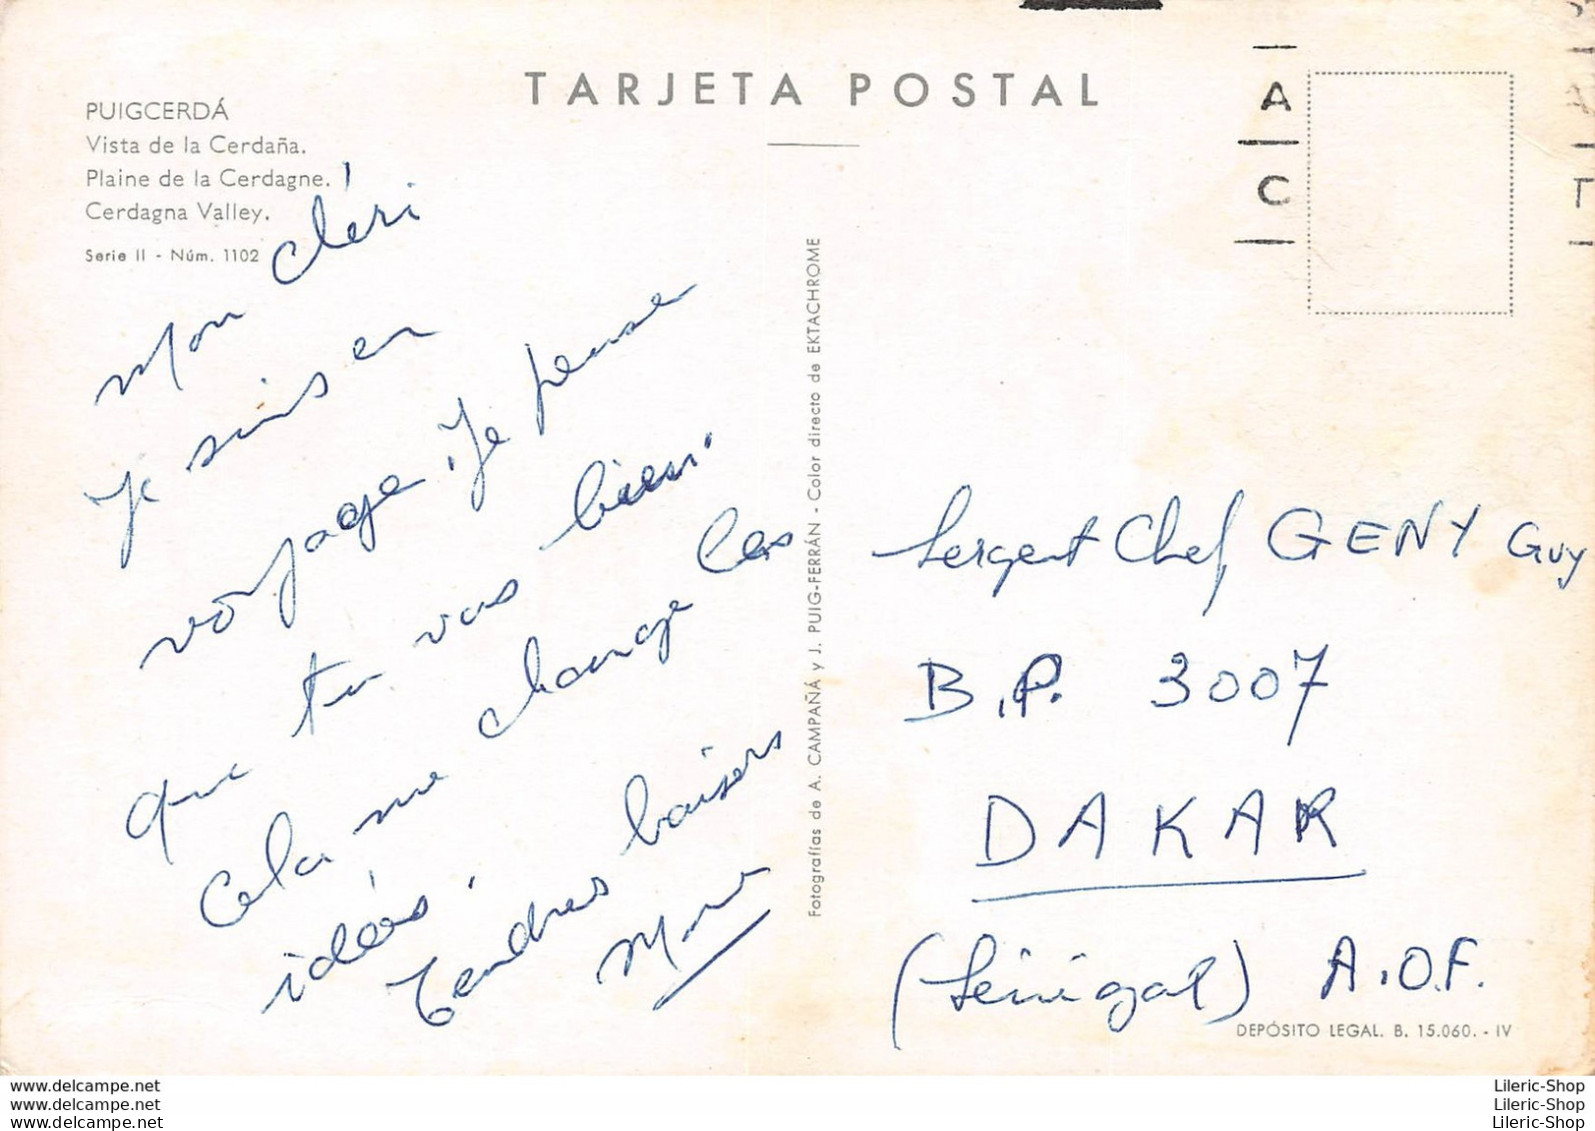 TARJETA POSTAL
PUIGCERDÁ
Vista de la Cerdaña.
Plaine de la Cerdagne.
Cerdagna Valley.
Serie II - Núm. 1102
Mon chéri
Je suis en
voyage. Je pense
que tu vas bien.
Cela me change les
idées.
Tendres baisers
Fotografías de A. CAMPAÑÁ y J. PUIG-FERRÁN - Color directo de EKTACHROME
A
C
A
T
Sergent Chef GENY Guy
B.P. 3007
DAKAR
(Sénégal) A.O.F.
DEPÓSITO LEGAL. B. 15.060. - IV
www.delcampe.net
www.delcampe.net
www.delcampe.net
Lileric-Shop
Lileric-Shop
Lileric-Shop